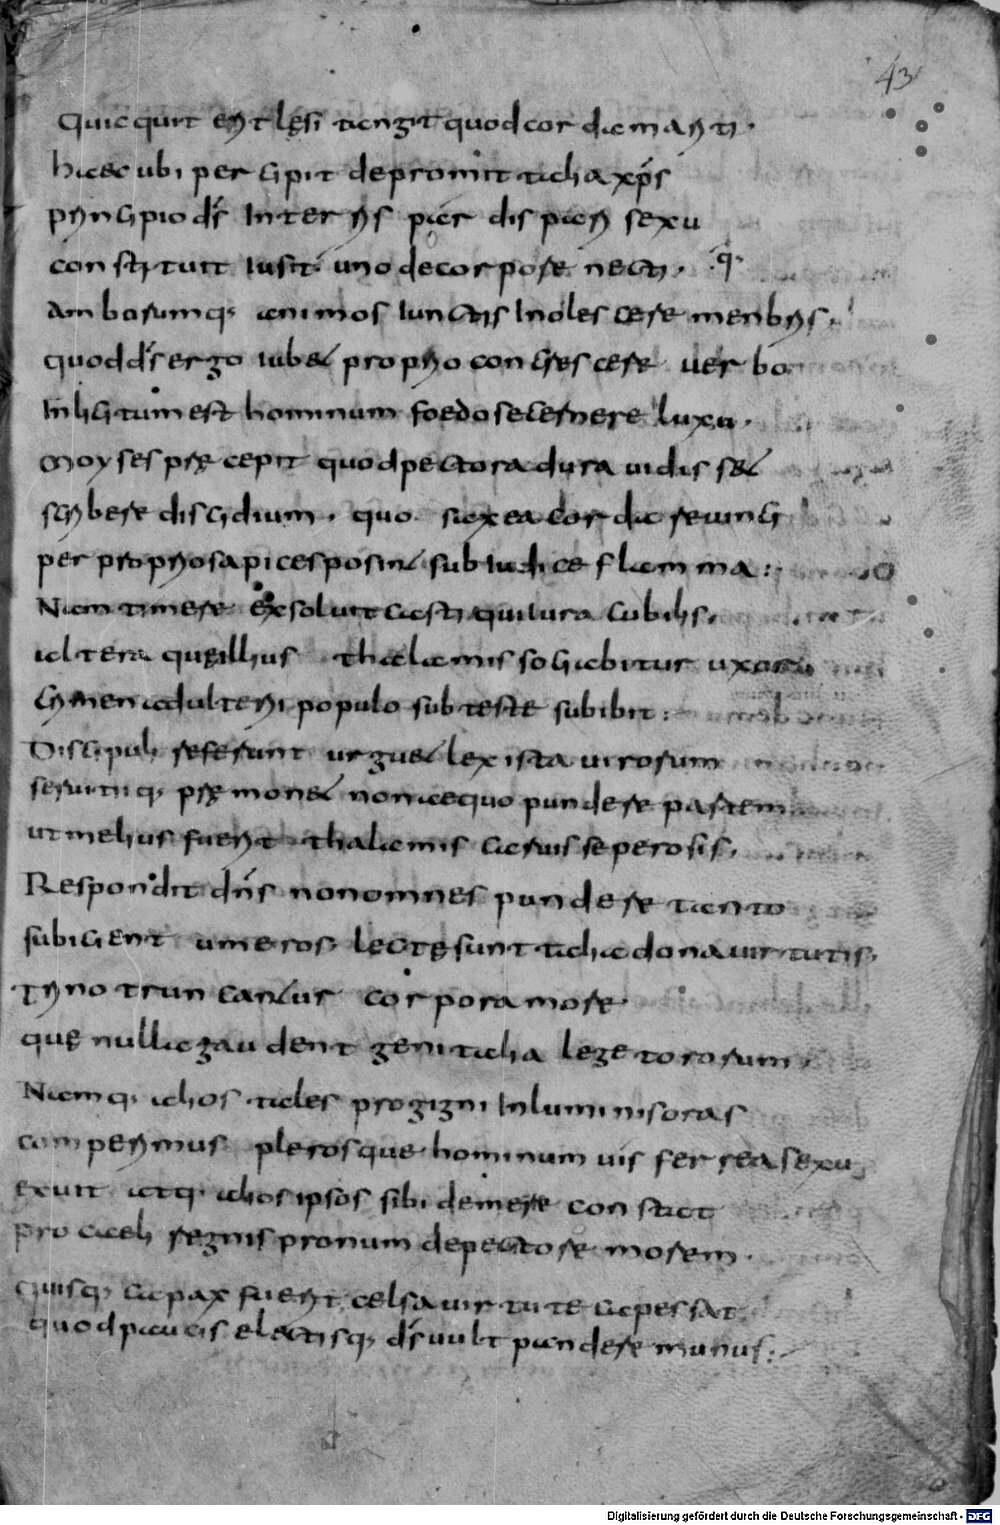 43
Quicquit erit lęsi tangit quod cor da mariti.
haec ubi percipit depromit talia xp̄s
principio d̄s Interris par dispari sexu
constituit Iusit uno decorpore necti. .q̄.
amborumq; animos Iunctis Inolescere menbris.
quod d̄s ergo Iubet proprio concrescere uerbo
Inlicitum est hominum foedo secernere luxu.
Moyses pręcepit quod pectora dura uidis set
scribere discidium. quo saxea corda reuinci
per proprios apices posint sub Iudice flamma:
Nam timere exsoluit casti qui Iura cubilis.
altera quę illius thalamis sociabitur uxor
crimen adulterii populo sub teste subibit:
Discipuli referunt urguet lex ista uirorum
seruitiiq; pręmonet non aequo pundere partem
ut melius fuerit thalamis caruisse perosis.
Respondit dn̄s non omnes pundere tanto
subicient umeros, lectę sunt talia dona uirtutis.
Trino truncantur corpora more
quę nulla gaudent geni talia lege tororum.
Namq; alios tales progigni In luminis oras
comperimus plerosque hominum uis ferrea sexu
exuit atq; alios ipsos sibi demere constat
pro caeli regnis pronum de pectore morem.
quisq; capax fuerit, celsa uirtute capessat
quod paucis electisq; d̄s uult pandere munus:
Digitalisierung gefördert durch die Deutsche Forschungsgemeinschaft - DFG